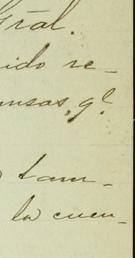 Gral.
ido re-
ensas, qe.
tam-
la cuen-